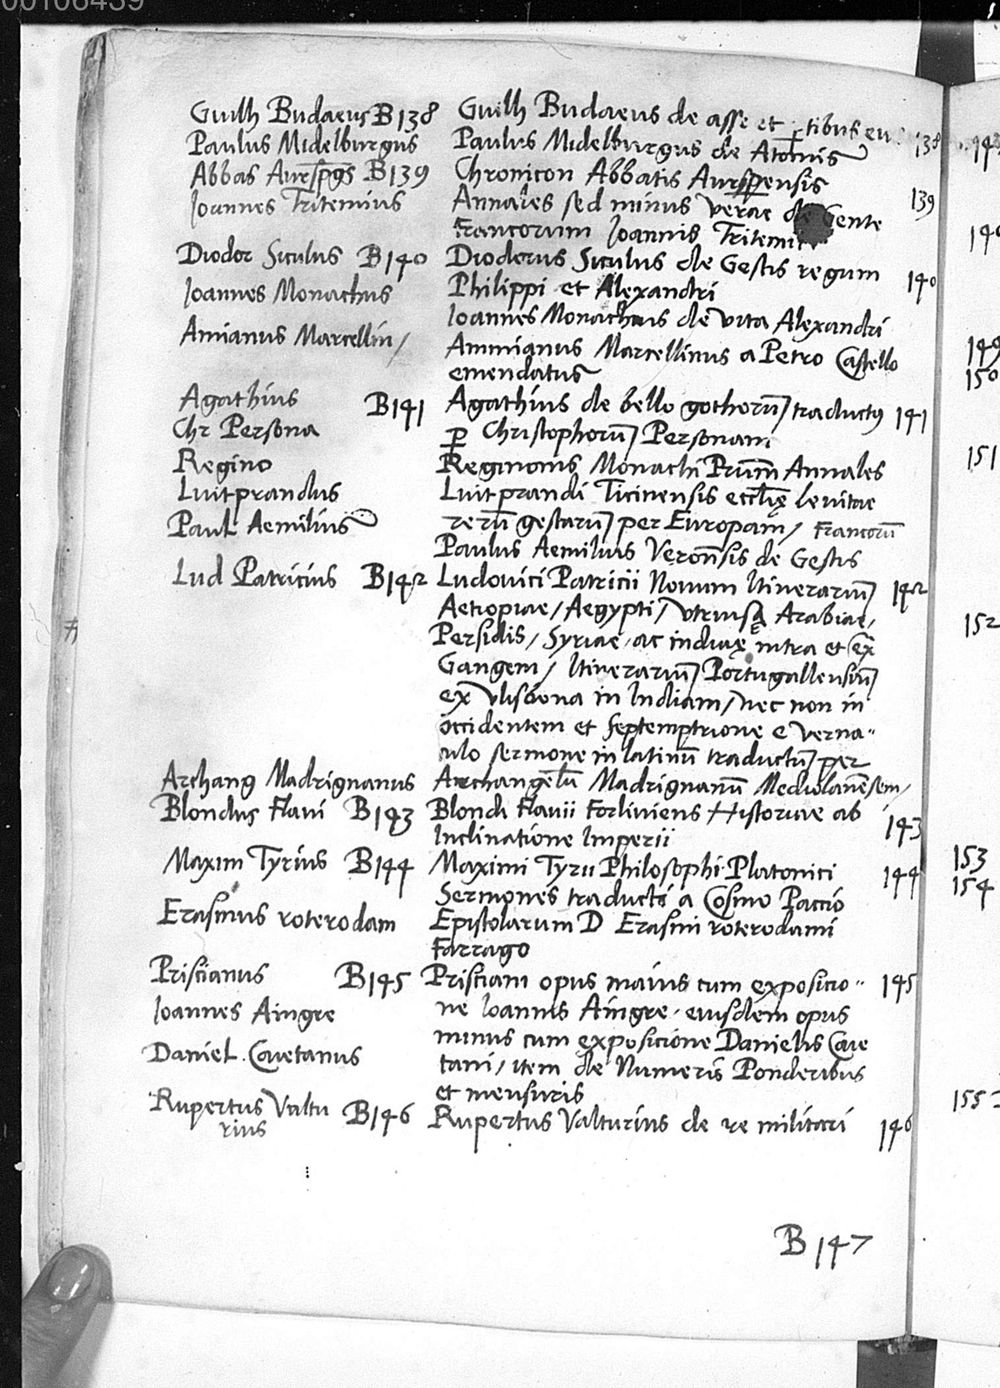 00106439
Guilh Budaeus B138 Guilh Budaeus de asse et ptibus eius 138
Paulus Midelburgus Paulus Midelburgus de Atomis
Abbas Aurspgs B139 Chronicon Abbatis Aurspensis
Joannes Tritemius Annales sed minus verae de Gente 139
Francorum Joannis Tritemii
Diodor Siculus B140 Diodorus Siculus de Gestis regum
Joannes Monachus Philippi et Alexandri 140
Ioannes Monachus de vita Alexandri
Amianus Marcellin/ Ammianus Marcellinus a Petro Castello
emendatus
Agathius B141 Agathius de bello gothorū/ traductus 141
Chr Persona p Christophorū Personam
Regino Reginonis Monachi Prum̄ Annales
Luitprandus Luitprandi Ticinensis eccl̄ię levitae
Paul Aemilius rerū gestarū per Europam/ Francorū
Paulus Aemilius Veron̄sis de Gestis
Lud Patricius B142 Ludovici Patricii Novum Itinerariū 142
Aetiopiae/ Aegypti/ vtriusq Arabiae,
Persidis/ Syriae, ac indiaę intra et ex̄
Gangem/ Itinerariū Portugallensiū
ex Vlisbona in Indiam/ nec non in
occidentem et septemptrione e verna-
culo sermone in latinū traductū per
Archang Madrignanus Archangelū Madrignanū Mediolanēsem,
Blondus Flavi B143 Blondi Flavii Forliviens Historiae ab
Inclinatione Imperii 143
Maxim Tyrius B144 Maximi Tyrii Philosophi Platonici 144
Sermones traducti a Cosmo Paccio
Erasmus roterodam Epistolarum D Erasmi roterodami
Farrago
Priscianus B145 Prisciani opus maius cum expositio- 145
Ioannes Aingre ne Ioannis Aingre, eiusdem opus
minus cum exposicione Danielis Caie
Daniel Caietanus tani/ item de Numeris Ponderibus
et mensuris
Rupertus Valtu B146 Rupertus Valturius de re militari 146
rius
B147
149
150
151
152
153
154
155